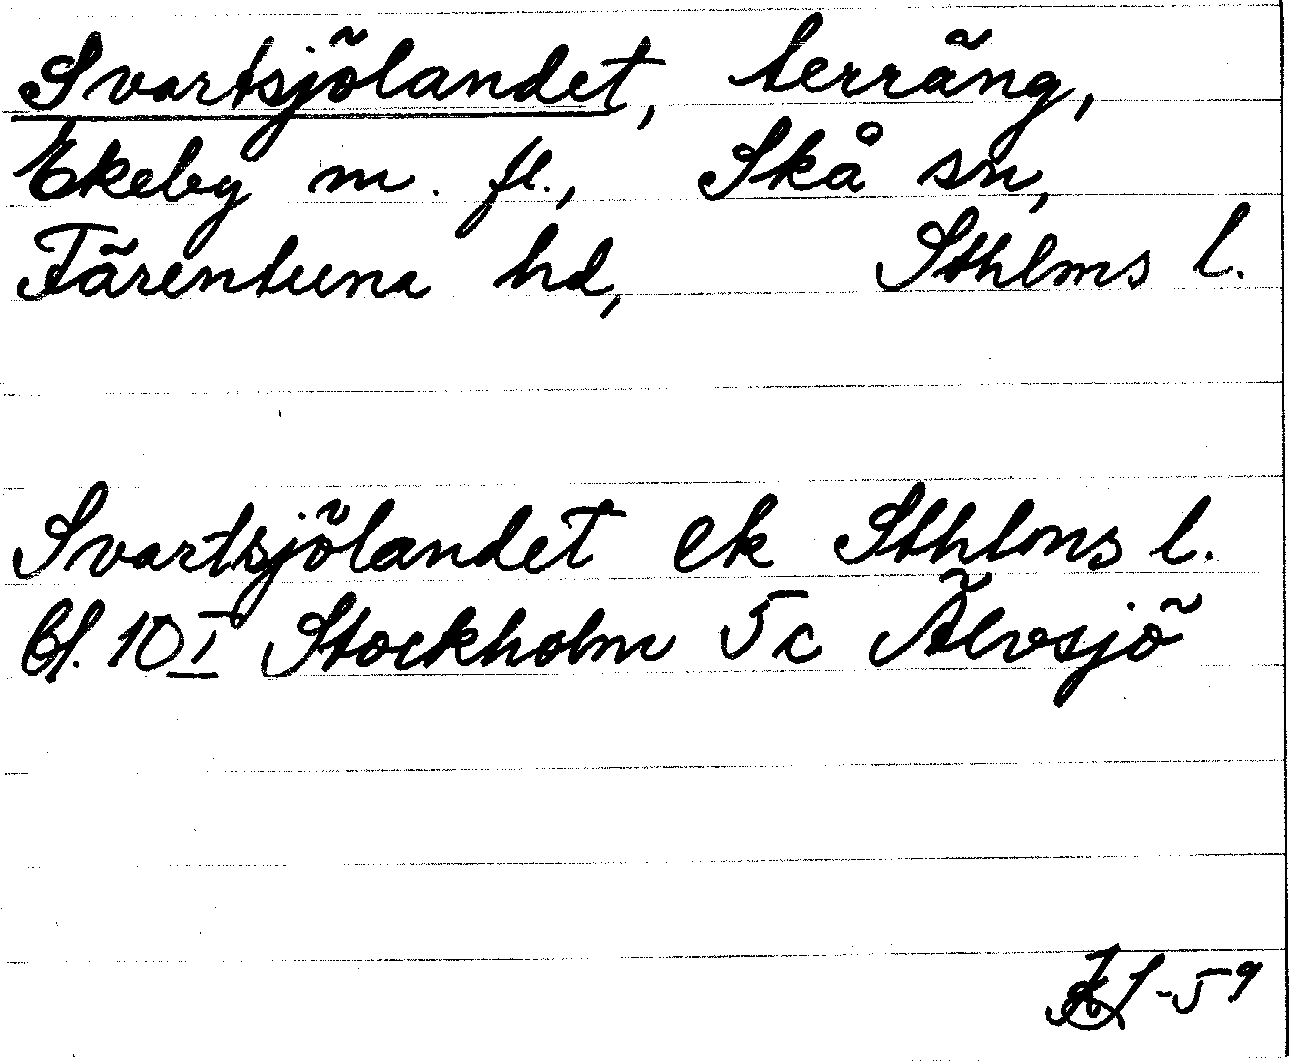 Svartsjölandet, terräng,
Ekeby m. fl., Skå sn,
Färentuna hd, Sthlms l.
Svartsjölandet ek Sthlms l.
bl. 10 I Stockholm 5c Älvsjö
-59